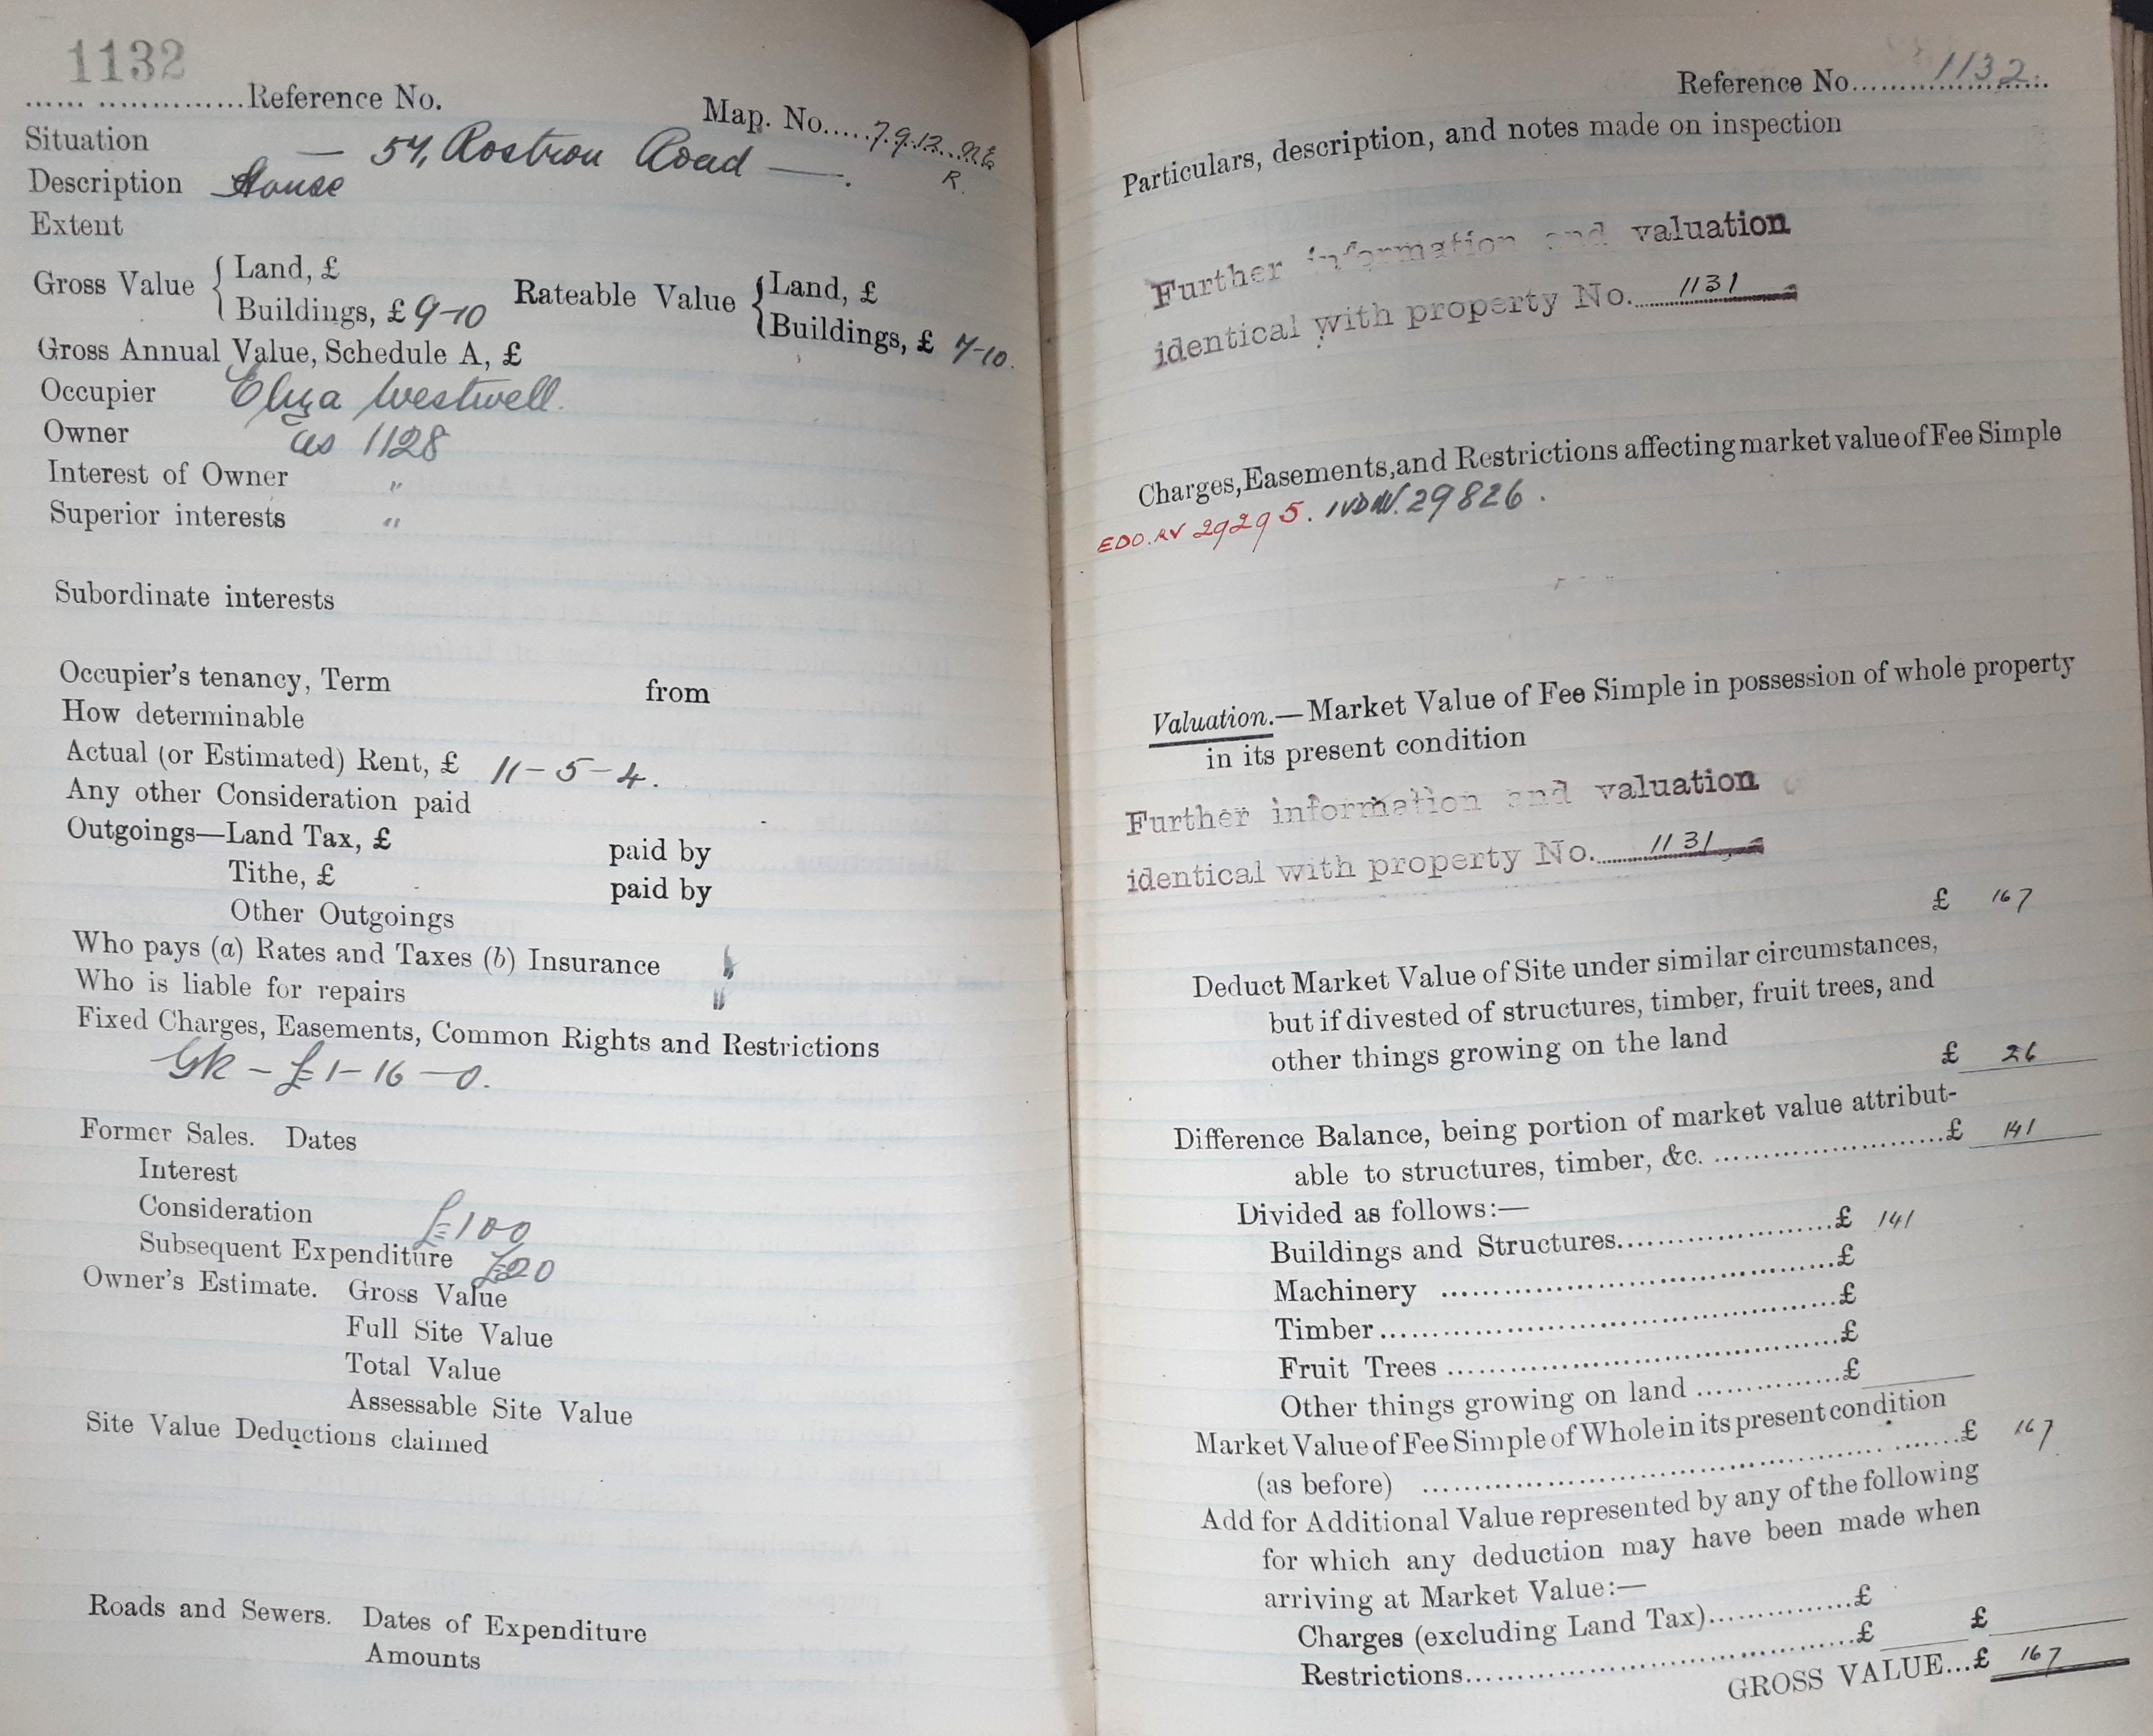 1132
...... ...............Reference No.
Map. No.....7.9.12..N.E.
R.
Situation — 57, Rostron Road —.
Description House
Extent
Gross Value { Land, £
Buildings, £ 9-10
Rateable Value { Land, £
Buildings, £ 7-10.
Gross Annual Value, Schedule A, £
Occupier Eliza Westwell.
Owner as 1128
Interest of Owner "
Superior interests "
Subordinate interests
Occupier's tenancy, Term from
How determinable
Actual (or Estimated) Rent, £ 11-5-4.
Any other Consideration paid
Outgoings—Land Tax, £ paid by
Tithe, £ paid by
Other Outgoings
Who pays (a) Rates and Taxes (b) Insurance
Who is liable for repairs "
Fixed Charges, Easements, Common Rights and Restrictions
GR - £1-16-0.
Former Sales. Dates
Interest
Consideration £100
Subsequent Expenditure £20
Owner's Estimate. Gross Value
Full Site Value
Total Value
Assessable Site Value
Site Value Deductions claimed
Roads and Sewers. Dates of Expenditure
Amounts
Reference No...1132...
Particulars, description, and notes made on inspection
Further information and valuation
identical with property No. 1131
Charges, Easements, and Restrictions affecting market value of Fee Simple
EDO. RV 29295. IVDIV. 29826.
Valuation.—Market Value of Fee Simple in possession of whole property
in its present condition
Further information and valuation
identical with property No. 1131
£ 167
Deduct Market Value of Site under similar circumstances,
but if divested of structures, timber, fruit trees, and
other things growing on the land
£ 26
Difference Balance, being portion of market value attribut-
able to structures, timber, &c. ........................£ 141
Divided as follows:—
Buildings and Structures.....................£ 141
Machinery .......................................£
Timber.............................................£
Fruit Trees ......................................£
Other things growing on land ...............£
Market Value of Fee Simple of Whole in its present condition
(as before) .....................................................£ 167
Add for Additional Value represented by any of the following
for which any deduction may have been made when
arriving at Market Value:—
Charges (excluding Land Tax)...............£
Restrictions.......................................£ £
GROSS VALUE...£ 167